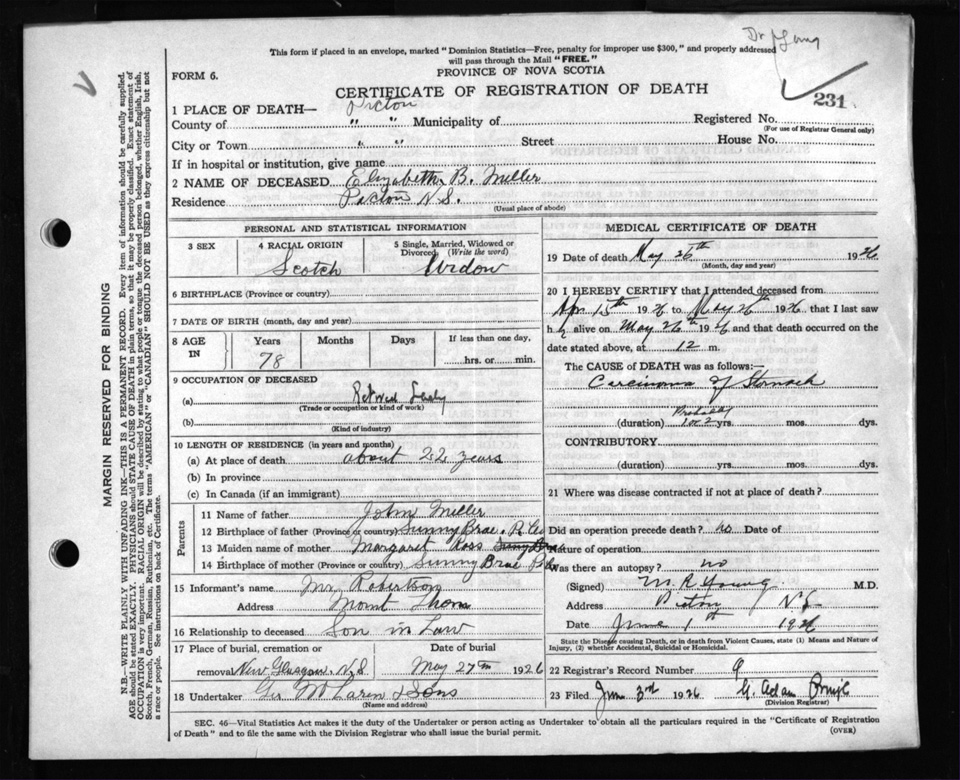 Dr Young
This form if placed in an envelope, marked "Dominion Statistics—Free, penalty for improper use $300," and properly addressed
will pass through the Mail "FREE."
FORM 6.
PROVINCE OF NOVA SCOTIA
CERTIFICATE OF REGISTRATION OF DEATH
231
1 PLACE OF DEATH— Pictou
County of " " Municipality of Registered No.
(For use of Registrar General only)
City or Town " " Street House No.
If in hospital or institution, give name
2 NAME OF DECEASED Elizabeth B. Miller
Residence Pictou N.S.
(Usual place of abode)
PERSONAL AND STATISTICAL INFORMATION
3 SEX 4 RACIAL ORIGIN 5 Single, Married, Widowed or
Divorced (Write the word)
Scotch Widow
6 BIRTHPLACE (Province or country)
7 DATE OF BIRTH (month, day and year)
8 AGE IN Years Months Days If less than one day,
78 hrs. or min.
9 OCCUPATION OF DECEASED
(a) Retired Lady
(Trade or occupation or kind of work)
(b)
(Kind of industry)
10 LENGTH OF RESIDENCE (in years and months)
(a) At place of death about 22 years
(b) In province
(c) In Canada (if an immigrant)
Parents
11 Name of father John Miller
12 Birthplace of father (Province or country) Sunny Brae. P. Co
13 Maiden name of mother Margaret Ross
14 Birthplace of mother (Province or country) Sunny Brae
15 Informant's name Mr Robertson
Address Mount Thom
16 Relationship to deceased Son in Law
17 Place of burial, cremation or Date of burial
removal New Glasgow. N.S May 27th 1926
18 Undertaker Geo McLaren & Sons
(Name and address)
MEDICAL CERTIFICATE OF DEATH
19 Date of death May 26th 1926
(Month, day and year)
20 I HEREBY CERTIFY that I attended deceased from
Apr 15th 1926 to May 26th 1926 that I last saw
h alive on May 26th 1926 and that death occurred on
date stated above, at 12 m.
The CAUSE of DEATH was as follows:—
Carcinoma of Stomach
Probably
(duration) 1 or 2 yrs. mos. dys.
CONTRIBUTORY
(duration) yrs. mos. dys.
21 Where was disease contracted if not at place of death?
Did an operation precede death? no Date of
Nature of operation
Was there an autopsy? no
(Signed) M R Young M.D.
Address Pictou N.S.
Date June 1st 1926
State the Disease causing Death, or in death from Violent Causes, state (1) Means and Nature of
Injury, (2) whether Accidental, Suicidal or Homicidal.
22 Registrar's Record Number 9
23 Filed Jun 3rd 1926 G. Adam
(Division Registrar)
SEC. 46—Vital Statistics Act makes it the duty of the Undertaker or person acting as Undertaker to obtain all the particulars required in the "Certificate of Registration
of Death" and to file the same with the Division Registrar who shall issue the burial permit.
(OVER)
MARGIN RESERVED FOR BINDING
N.B.—WRITE PLAINLY WITH UNFADING INK—THIS IS A PERMANENT RECORD. Every item of information should be carefully supplied.
AGE should be stated EXACTLY. PHYSICIANS should STATE CAUSE OF DEATH in plain terms, so that it may be properly classified. Exact statement of
OCCUPATION is very important. RACIAL ORIGIN will be described by stating to what people or tongue the deceased person belonged, whether English, Irish,
Scotch, French, German, Russian, Ruthenian, etc. The terms "AMERICAN" or "CANADIAN" SHOULD NOT BE USED as they express citizenship but not
a race or people. See instructions on back of Certificate.